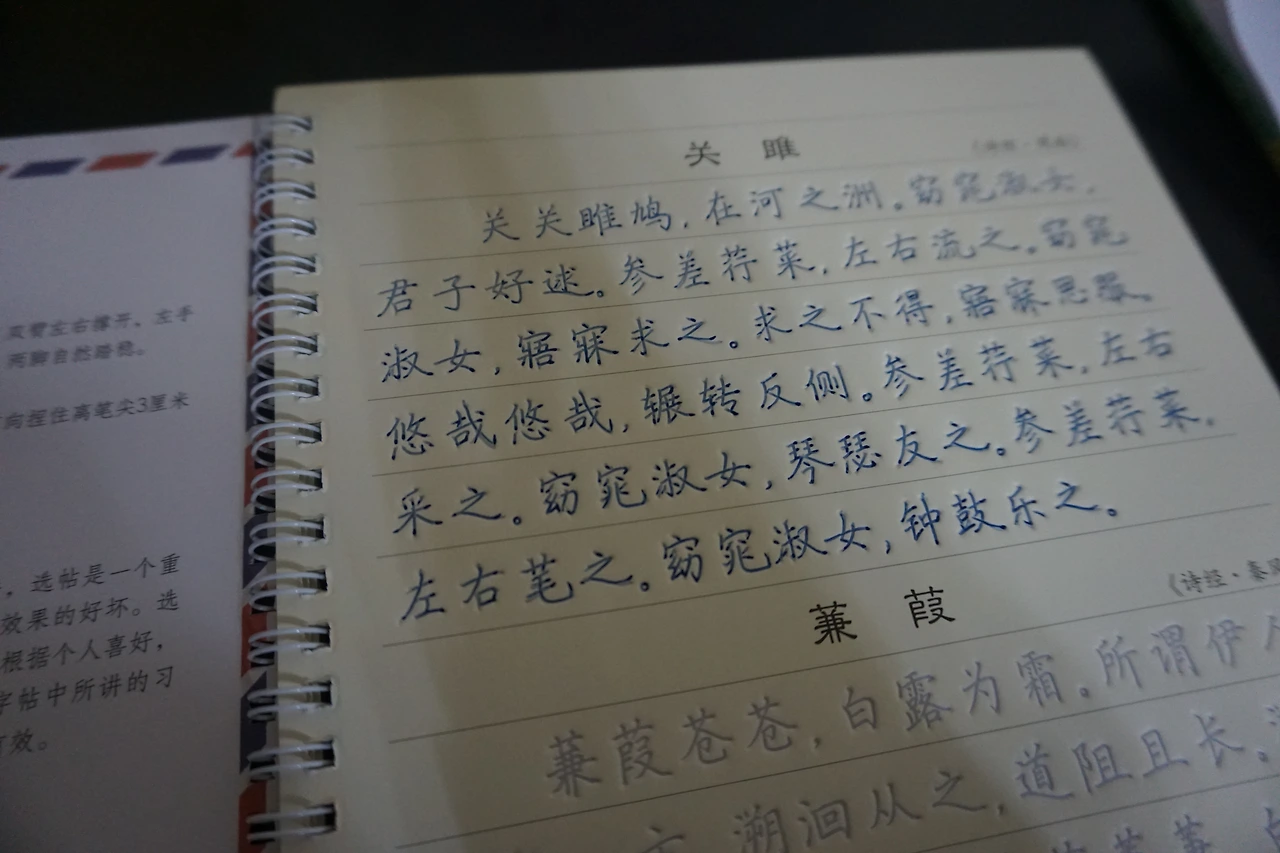 双臂左右撑开，左手
两脚自然踏稳。
向捏住离笔尖3厘米
，选帖是一个重
效果的好坏。选
根据个人喜好，
字帖中所讲的习
有效。
关 雎
关关雎鸠，在河之洲。窈窕淑女，
君子好逑。参差荇菜，左右流之。窈窕
淑女，寤寐求之。求之不得，寤寐思服。
悠哉悠哉，辗转反侧。参差荇菜，左右
采之。窈窕淑女，琴瑟友之。参差荇菜，
左右芼之。窈窕淑女，钟鼓乐之。
蒹 葭
《诗经·秦风
蒹葭苍苍，白露为霜。所谓伊人
方，溯洄从之，道阻且长。